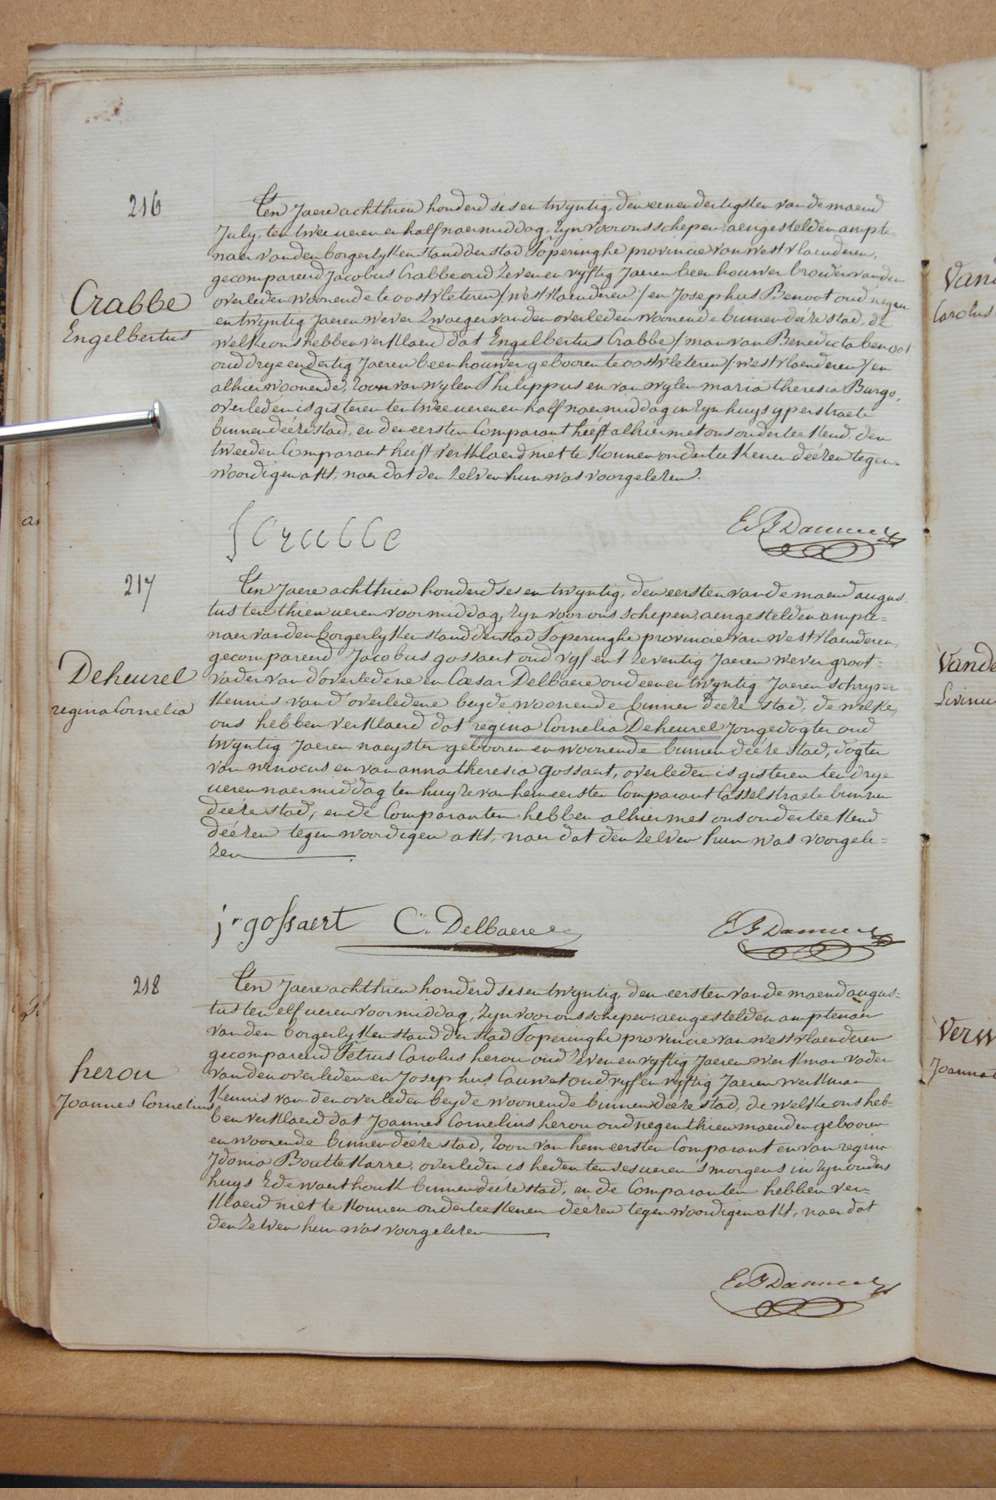 216
Crabbe
Engelbertus
Ten Jaere achthien honderd ses en twyntig, den een en dertigsten van de maend
July, ten twee ueren en half naermiddag, zyn voor ons schepen, aengestelden ampte-
naer van den borgerlyken stand der stad Poperinghe provincie van westvlaenderen,
gecompareerd Jacobus Crabbe oud zeven en vyftig Jaeren beenhouwer broeder van den
overleden woonende te oostvleteren /westvlaenderen/ en Josephus Benoot oud negen
en twyntig Jaeren wever zwaeger van den overleden woonende binnen déeze stad, de
welke ons hebben verklaerd dat Engelbertus Crabbe / man van Benedicta benoot
oud drye en dertig Jaeren beenhouwer gebooren te oostvleteren / westvlaenderen / en
alhier woonende, zoon van wylen Philippus en van wylen maria theresia Burgo,
overleden is gisteren ten twee ueren en half naermiddag in zyn huys yperstraete
binnen déeze stad, en den eersten Comparant heeft alhier met ons onderteekend, den
tweeden Comparant heeft verklaerd niet te konnen onderteekenen déézen tegen-
woordigen akt, naer dat den zelven hun was voorgelezen.
J Crabbe
217
Deheurel
regina Cornelia
Ten Jaere achthien honderd ses en twyntig, den eersten van de maend augus
tus ten thien ueren voormiddag, zyn voor ons schepen, aengestelden ampte-
naer van den borgerlyken stand der stad Poperinghe provincie van westvlaenderen,
gecompareerd Jacobus gossaert oud vyf en t'zeventig Jaeren wever groot-
vader van d'overledene en Cæsar Delbaere oud een en twyntig Jaeren schryver
kennis van d'overledene beyde woonende binnen déeze stad, de welke
ons hebben verklaerd dat regina Cornelia Deheurel Jongedogter oud
twyntig Jaeren naeyster gebooren en woonende binnen déeze stad, dogter
van winocus en van anna theresia gossaert, overleden is gisteren ten drye
ueren naermiddag ten huyze van hem eersten Comparant Casselstraete binnen
déeze stad, en de Comparanten hebben alhier met ons onderteekend
déézen tegenwoordigen akt, naer dat den zelven hun was voorgele-
zen
j gossaert C. Delbaere
218
herou
Joannes Cornelius
Ten Jaere achthien honderd ses en twyntig, den eersten van de maend augus-
tus ten elf ueren voormiddag, zyn voor ons schepen, aengestelden amptenaer
van den borgerlyken stand der stad Poperinghe provincie van westvlaenderen
gecompareerd Petrus Carolus herou oud zeven en vyftig Jaeren werkman vader
van den overleden en Josephus Cauwet oud vyf en vyftig Jaeren werkman
kennis van den overleden beyde woonende binnen déeze stad, de welke ons heb-
ben verklaerd dat Joannes Cornelius herou oud negenthien maenden gebooren
en woonende binnen déeze stad, zoon van hem eersten Comparant en van regina
Jdonia Bouttekarre, overleden is heden ten ses ueren 's morgens in zyn ouders
huys Edewaerthouk binnen déeze stad, en de Comparanten hebben ver-
klaerd niet te konnen onderteekenen déézen tegenwoordigen akt, naer dat
den zelven hun was voorgelezen
Vand
Carolus
Vande
Livinu
Joanna